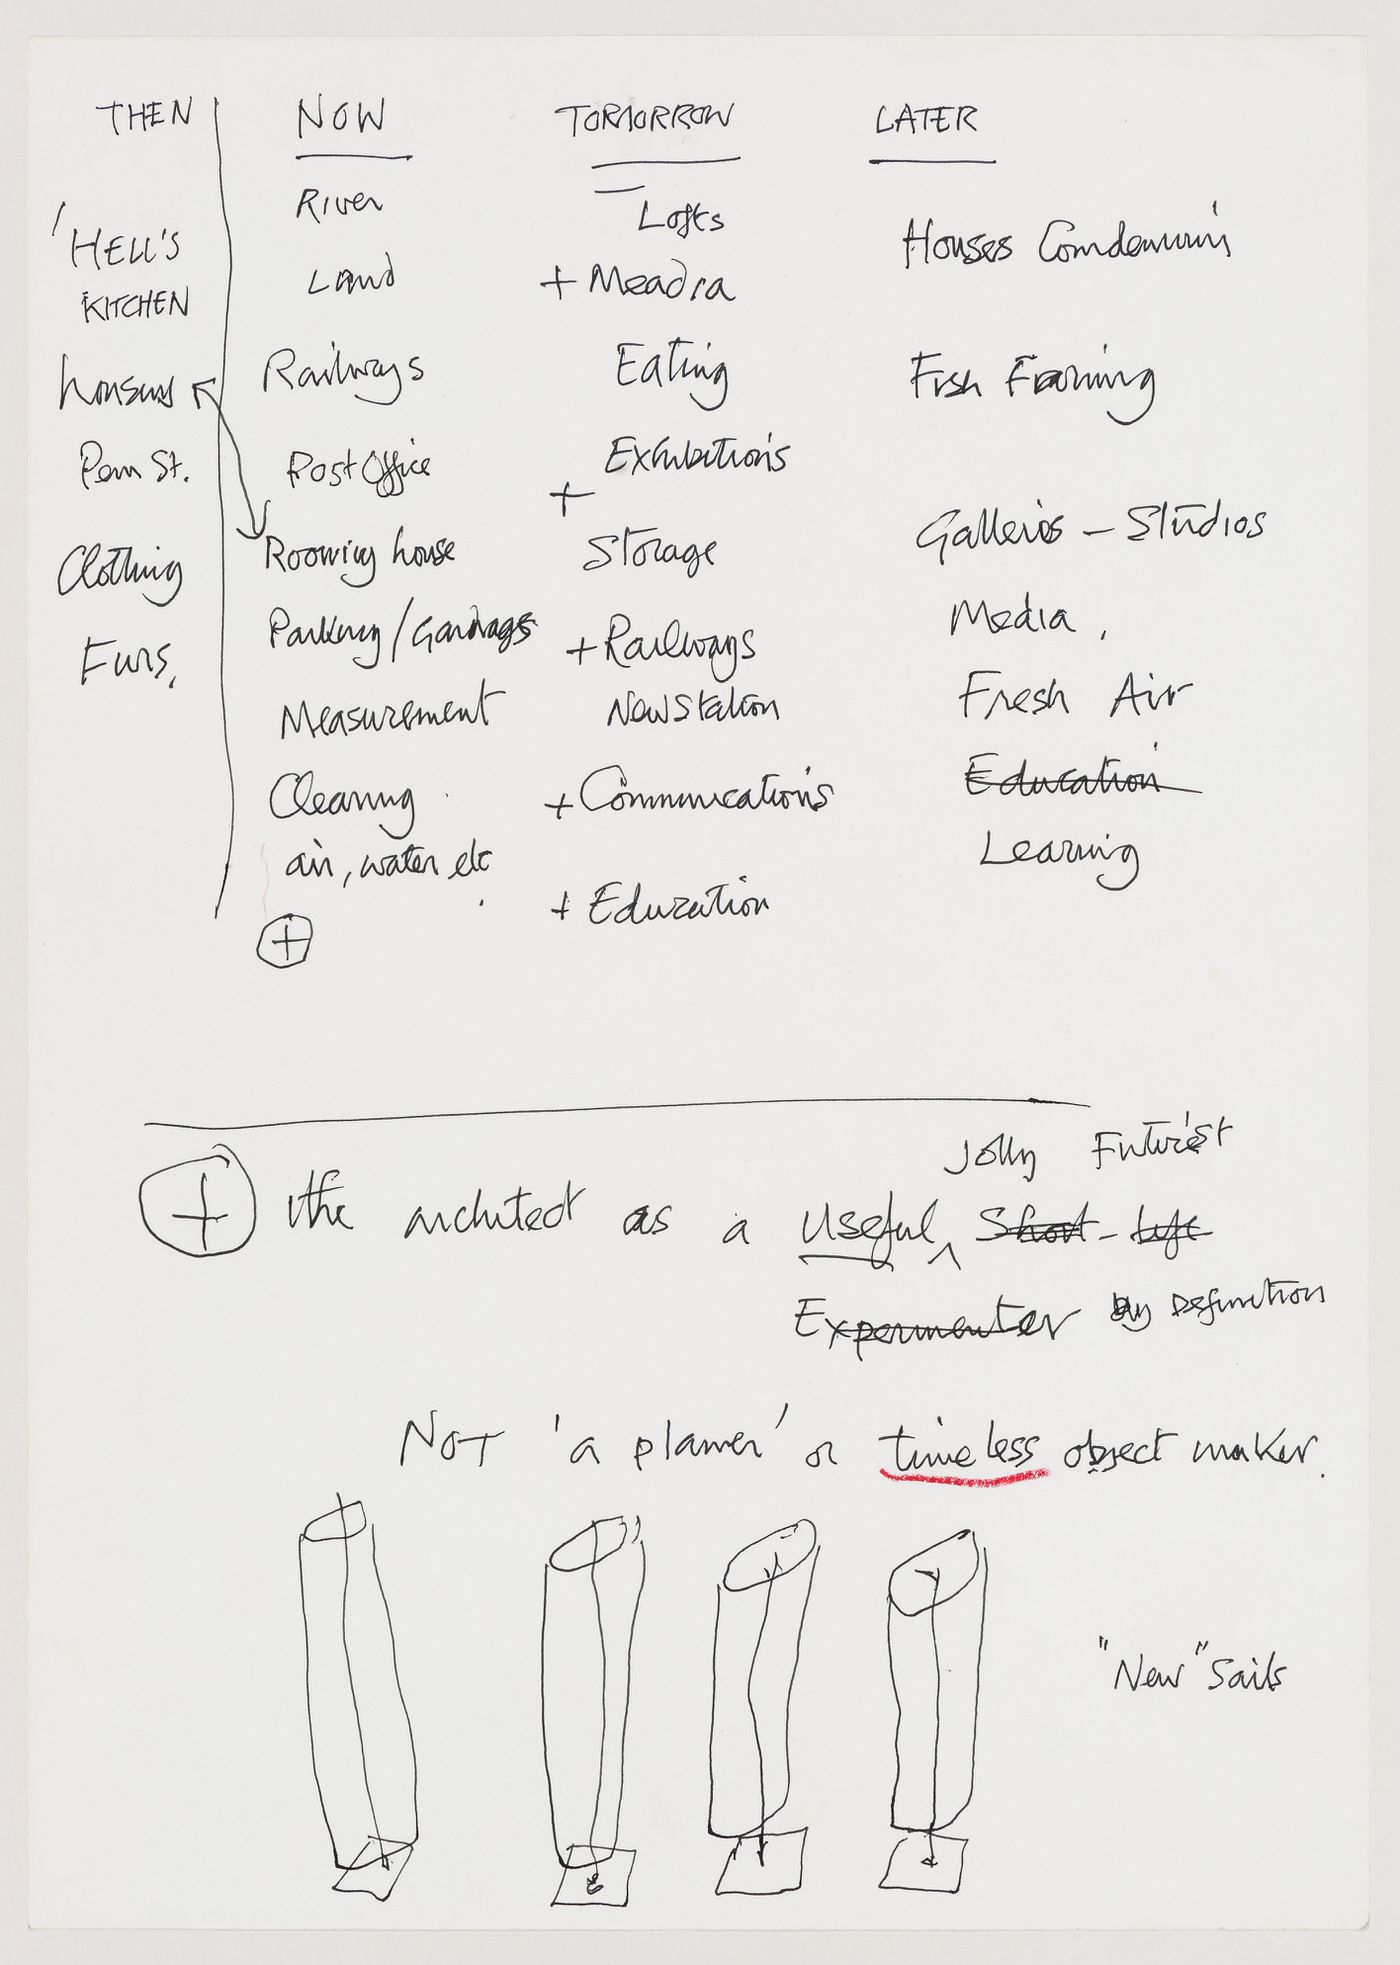 THEN
NOW
TOMORROW
LATER
'HELL'S
KITCHEN
housing
Penn St.
Clothing
Furs,
River
Land
Railways
Post Office
Rooming house
Parking / Garbages
Measurement
Cleaning
air, water etc.
+
Lofts
+ Meadia
Eating
Exhibitions
+
Storage
+ Railways
New Station
+ Communications
+ Education
Houses
Fish Farming
Galleries – Studios
Media,
Fresh Air
Education
Learning
Jolly Futurist
+ the architect as a Useful ^ Short - Life
Expermenter by Defunction
NOT 'a planner' or timeless object maker.
"New" Sails